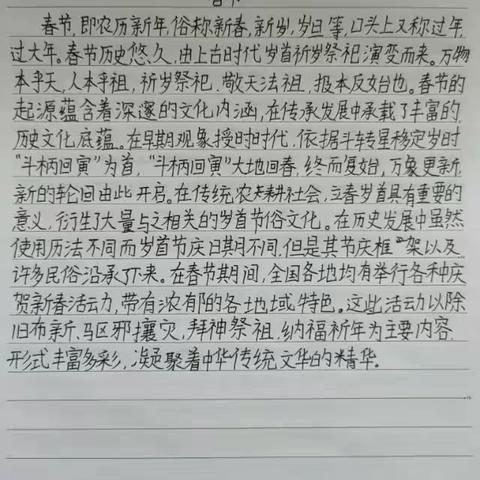 春节
春节,即农历新年,俗称新春,新岁,岁旦等,口头上又称过年,
过大年。春节历史悠久,由上古时代岁首祈岁祭祀演变而来。万物
本乎天,人本乎祖,祈岁祭祀,敬天法祖,报本反始也。春节的
起源蕴含着深邃的文化内涵,在传承发展中承载了丰富的
历史文化底蕴。在早期观象授时时代,依据斗转星移定岁时
“斗柄回寅”为首,“斗柄回寅”大地回春,终而复始,万象更新,
新的轮回由此开启。在传统农耕社会,立春岁首具有重要的
意义,衍生了大量与之相关的岁首节俗文化。在历史发展中虽然
使用历法不同而岁首节庆日期不同,但是其节庆框架以及
许多民俗沿承了下来。在春节期间,全国各地均有举行各种庆
贺新春活动,带有浓郁的各地域特色。这此活动以除
旧布新、驱邪攘灾,拜神祭祖,纳福祈年为主要内容,
形式丰富多彩,凝聚着中华传统文华的精华。